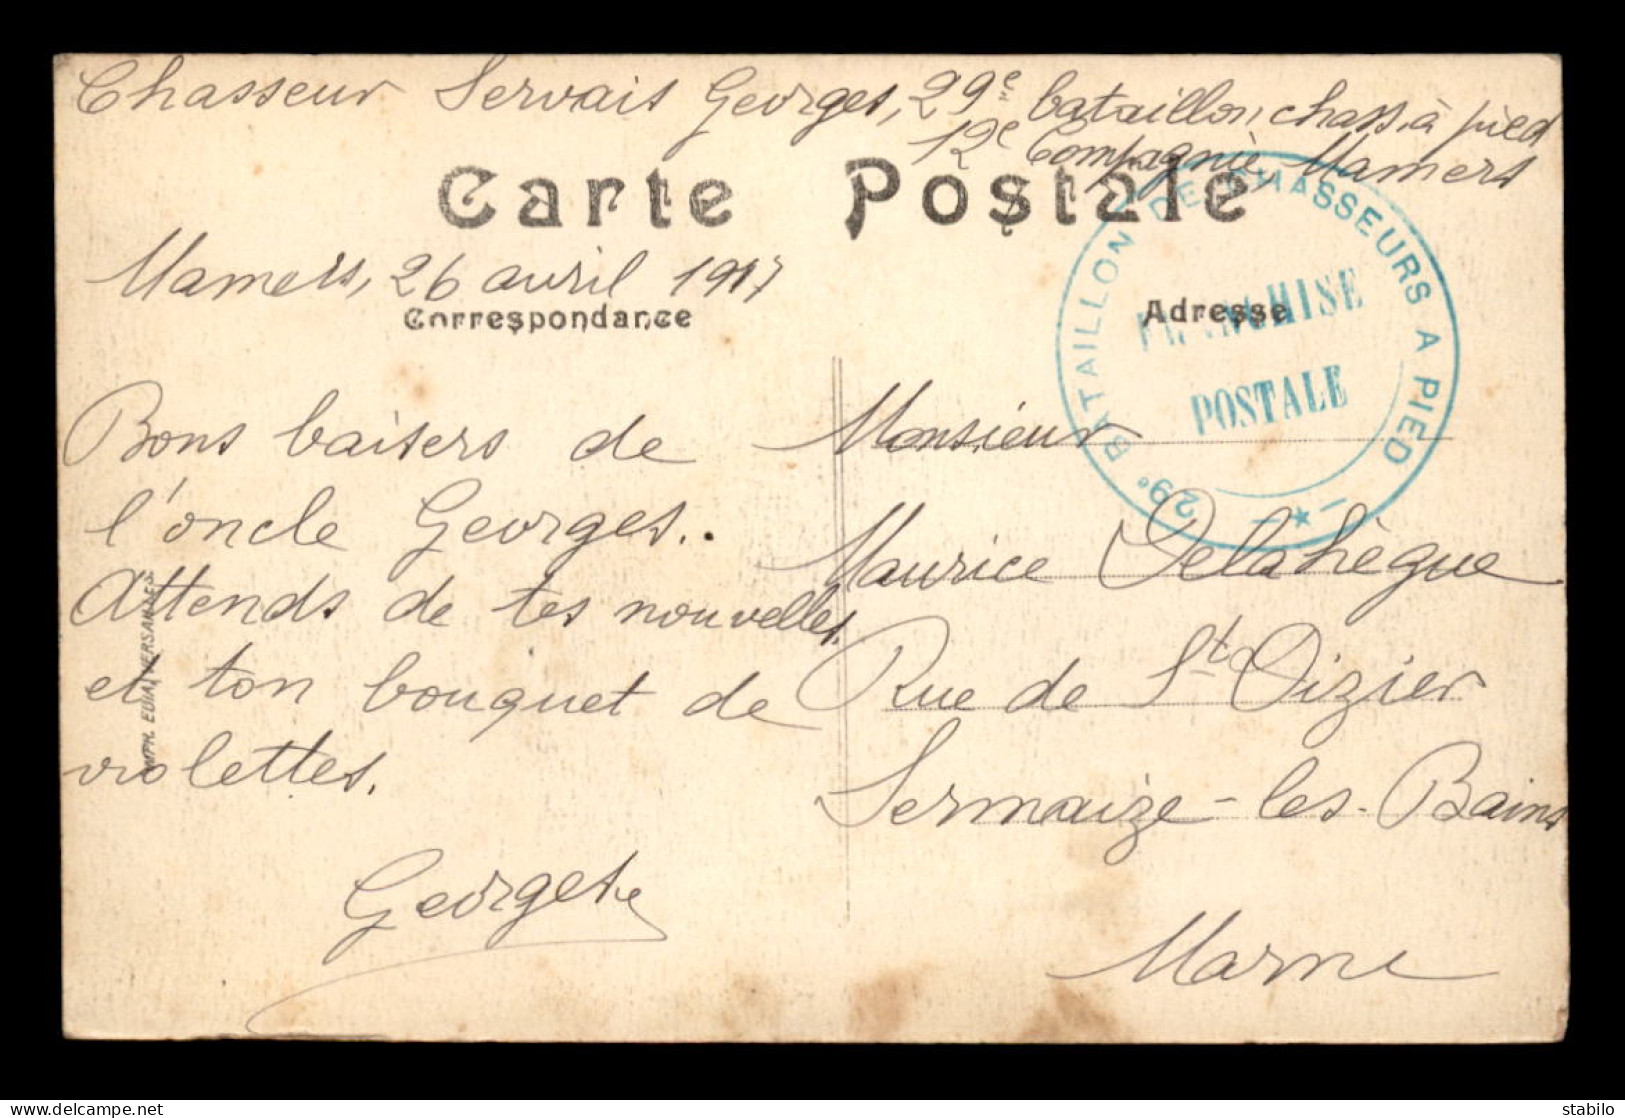 Chasseur Servais Georges, 29e bataillon, chass. à pied
12e Compagnie, Mamers
Carte Postale
Mamers, 26 avril 1917
Correspondance
Adresse
29e BATAILLON DE CHASSEURS A PIED
FRANCHISE
POSTALE
Bons baisers de
l'oncle Georges..
Attends de tes nouvelles,
et ton bouquet de
violettes.
Georges
Monsieur
Maurice Delahègue
Rue de St Dizier
Sermaize-les-Bains
Marne
IMPH. EDIA, VERSAILLES.
delcampe.net
stabilo